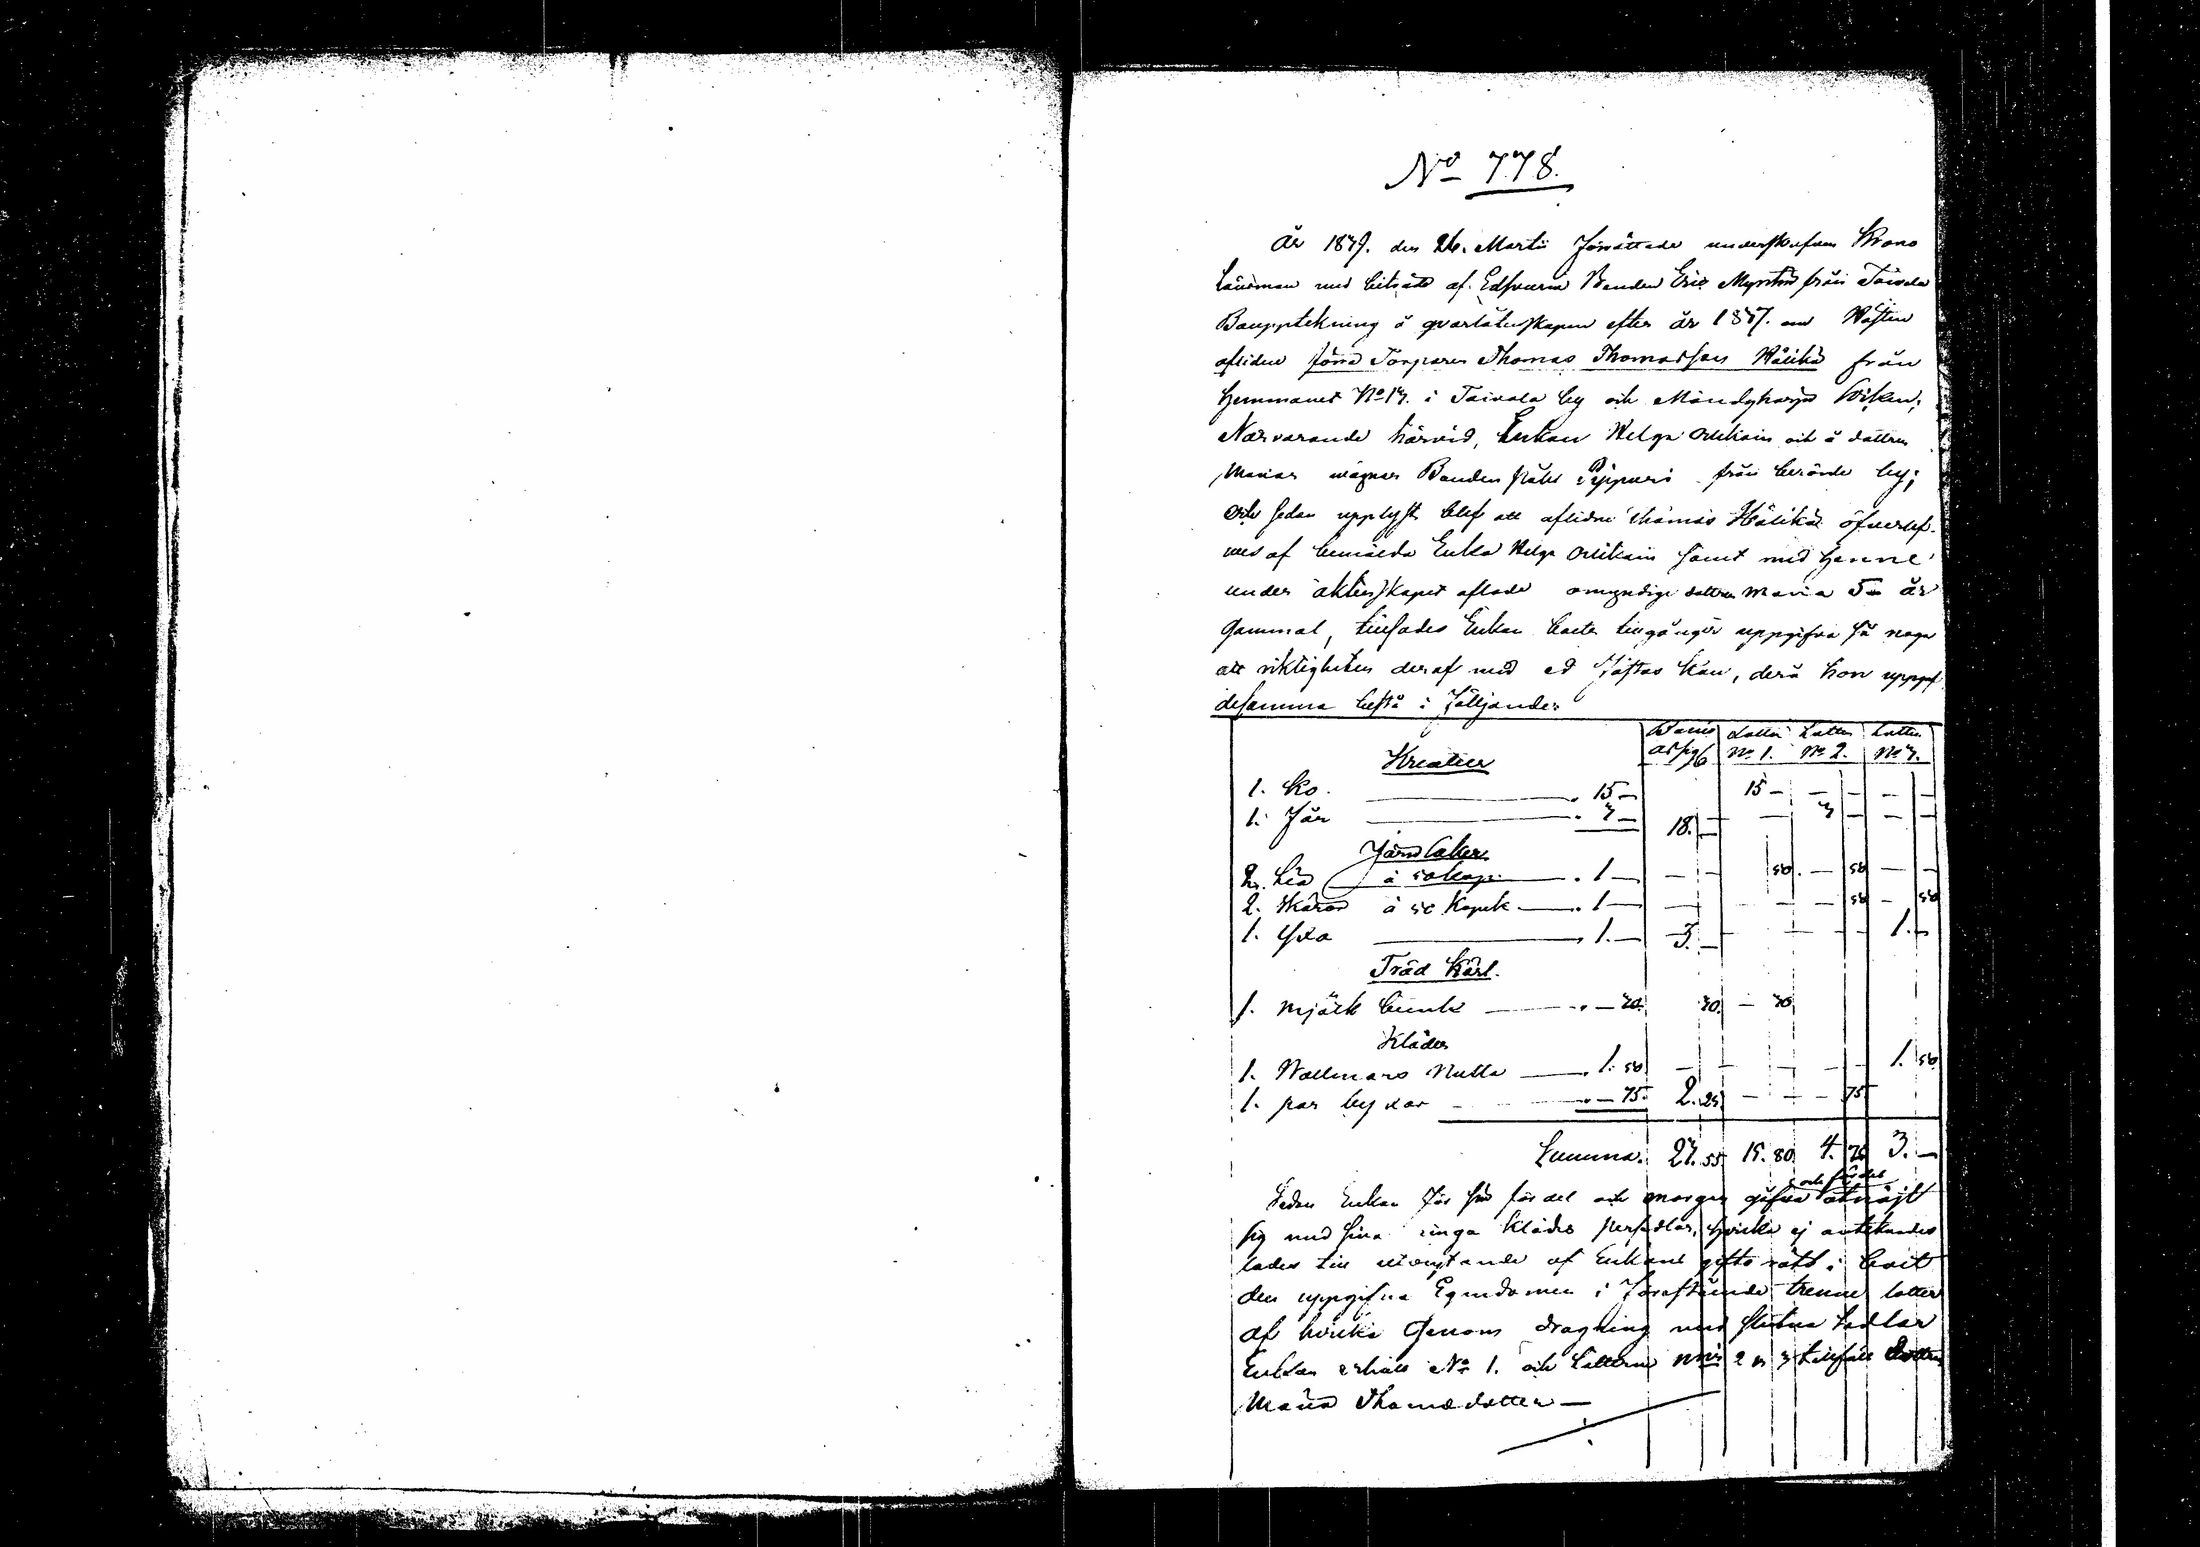 No 778.
År 1839. den 26. Martii förrättade underskrefven Krono
Länsman med biträde af Edsvurna Bonden Eric från Taivala
Bouppteckning å qvarlåtenskapen efter år 1837. om Hösten
aflidne förra Torparen Thomas Thomasson Hälikä från
Hemmanet No 13. i Taivala by och
Närvarande härvid, Enkan Helga och å dottren
Marias vägnar Bonden Påhl Pippuri från berörde by;
och sedan upplyst blef att aflidne Thomas Hälikä öfverlef-
ves af bemälda Enka Helga samt med henne
under äktenskapet aflade omyndige dottren Maria 5 år
Gammal, tillsades Enkan boets tillgångar uppgifva så noga
att riktigheten deraf med ed fästas kan, derå hon uppgaf
desamma bestå i följande:
Lotten Lotten Lotten
No 1. No 2. No 3.
Kreatur
1. Ko. 15 — 15 — — — — —
1. Får 3 — 18. — — 3 — — —
Jernsaker
2. Lia à 50 kop. 1 — — — 50. — 50 — —
2. Skäror à 50 Kopek 1 — — — 50 — 50
1. Yxa 1. — 3. — — — — 1. —
Träd Kärl.
1. Mjölk bunk — 30. 30. — 30
Kläder
1. Wallmars 1. 50 — — — — — 1. 50
1. par byxor — 75. 2. 25 — — — 75
Summa. 23. 55 15. 80. 4. 75 3. —
och fördel
Sedan Enkan för sin fördel och morgon gåfva åtnöjt
sig med sina ringa kläder persedlar, hvilka ej antecknades
lades till utrönande af Enkans giftorätt i boet
den uppgifna Egendomen i föreståënde trenne lotter
af hvilka Genom dragning med slutna Sedlar
Enkan erhåll No 1. och Lotterne 2 3 tillföll Dottren
Maria Thomædotter —